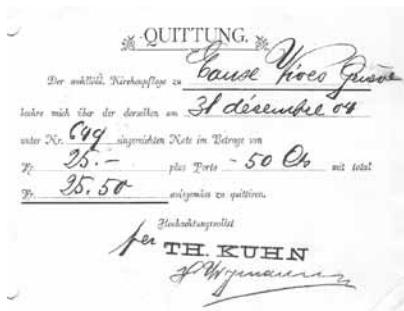 QUITTUNG.
Der wohllöbl. Kirchenpflege zu
beehre mich über der derselben am 31 désembre 04
unter Nr. 649 eingereichten Note im Betrage von
Fr. 25.- plus Porto - 50 Cts mit total
Fr. 25.50 zu quittiren.
Hochachtungsvollst
per TH. KUHN